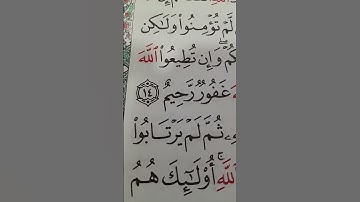 لَّمْ تُؤْمِنُوا۟ وَلَٰكِن
كُمْ ۖ وَإِن تُطِيعُوا۟ ٱللَّهَ
غَفُورٌ رَّحِيمٌ ١٤
ثُمَّ لَمْ يَرْتَابُوا۟
ٱللَّهِ ۚ أُو۟لَٰٓئِكَ هُمُ